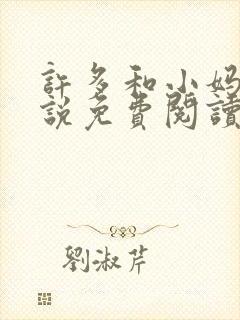 許多和小妈
說免費閱讀
劉淑芹